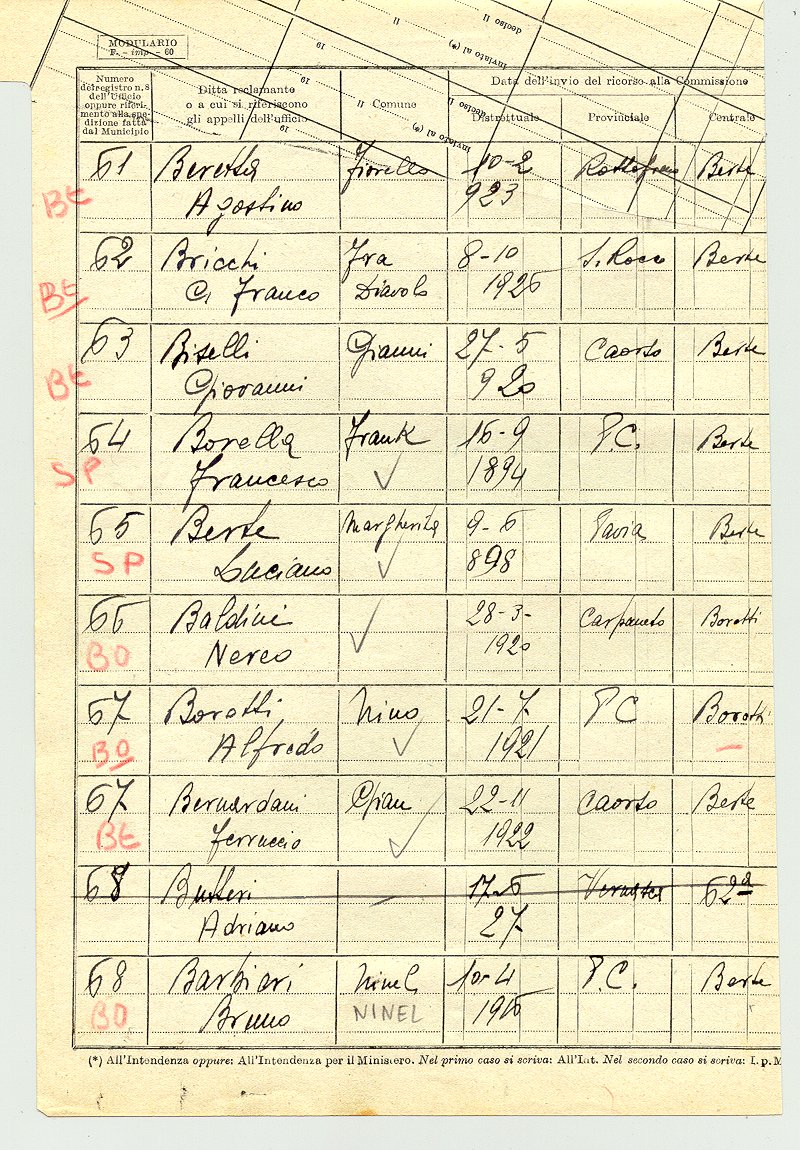 MODULARIO
F. - imp - 60
Numero del registro n. 8 dell'Ufficio oppure riferimento alla spedizione fatta dal Municipio
Ditta reclamante o a cui si riferiscono gli appelli dell'ufficio
Il Comune
Data dell'invio del ricorso alla Commissione
Distrettuale
Provinciale
Centrale
deciso il
inviato al (*)
Il
19
19
deciso il
inviato al (*)
19
61 Beretta Fiorello 10-2 Berte
BE Agostino 923
62 Bricchi Fra 8-10 S. Rocco Berte
BE G. Franco Diavolo 1926
63 Biselli Gianni 27-5 Caorso Berte
BE Giovanni 920
64 Borella Frank 16-9 P.C. Berte
SP Francesco ✓ 1894
65 Berte Margherita 9-6 Pavia Berte
SP Luciano ✓ 898
66 Baldini ✓ 28-3- Carpaneto Boratti
BO Nereo 1920
67 Boratti Nino 21-7- PC Boratti
BO Alfredo ✓ 1921
67 Bernardani Gian 22-11 Caorso Berte
BE Ferruccio ✓ 1922
68 Butteri - 17-6 62ª
Adriano 27
68 Barbieri Ninel 10-4 P.C. Berte
BO Bruno NINEL 1916
(*) All'Intendenza oppure: All'Intendenza per il Ministero. Nel primo caso si scriva: All'Int. Nel secondo caso si scriva: I. p. M